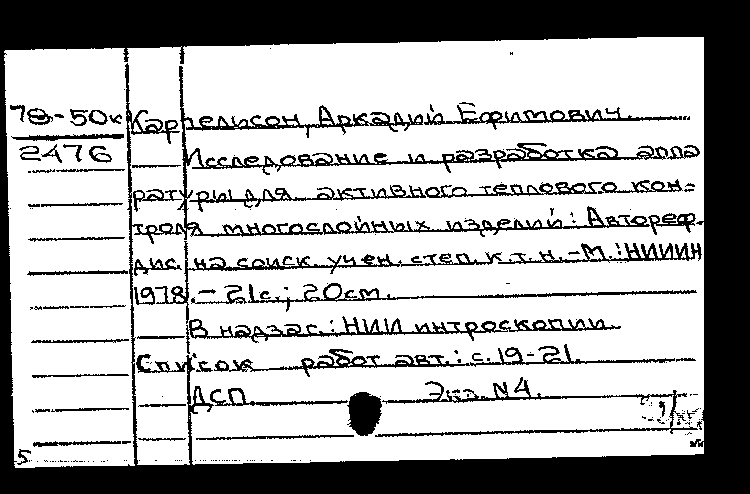 78-50к Карпелисон, Аркадий Ефимович.
2476 Исследование и разработка аппа
ратуры для активного теплового кон-
троля многослойных изделий: Автореф.
дис. на соиск. учен. степ. к. т. н. - М.: НИИИН
1978. - 21с.; 20см.
В надзаг.: НИИ интроскопии.
Список работ авт.: с. 19-21.
ДСП. Экз. N4.
5